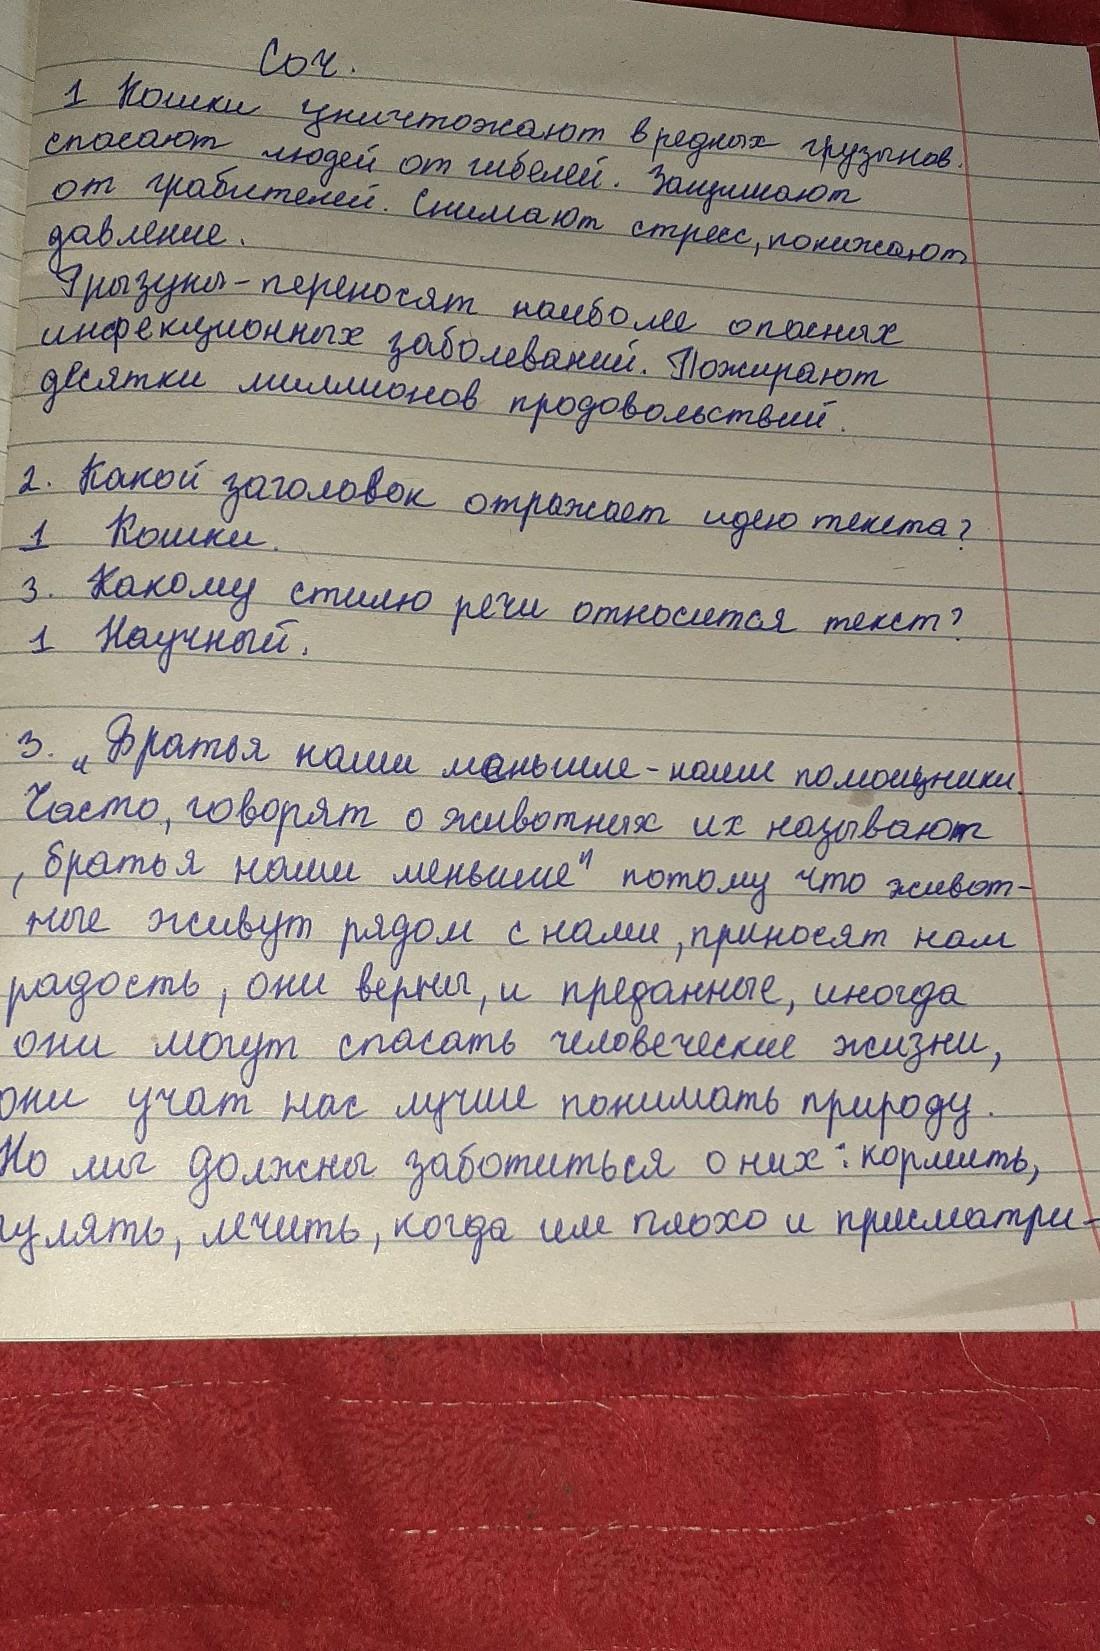 Соч.
1 Кошки уничтожают вредных грузынов.
спасают людей от гибелей. Защищают
от грабителей. Снимают стресс, понижают
давление.
Грызуны - переносят наиболее опасных
инфекционных заболеваний. Пожирают
десятки миллионов продовольствий.
2. Какой заголовок отражает идею текста?
1 Кошки.
3. Какому стилю речи относится текст?
1 Научный.
3. „Братья наши меньшие - наши помощники.
Часто, говорят о животных их называют
„братья наши меньшие" потому что живот-
ные живут рядом с нами, приносят нам
радость, они верны, и преданные, иногда
они могут спасать человеческие жизни,
они учат нас лучше понимать природу.
Но мы должны заботиться о них: кормить,
гулять, лечить, когда им плохо и присматри-